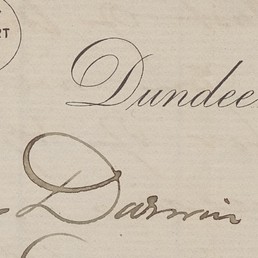 Dundee
Darwin